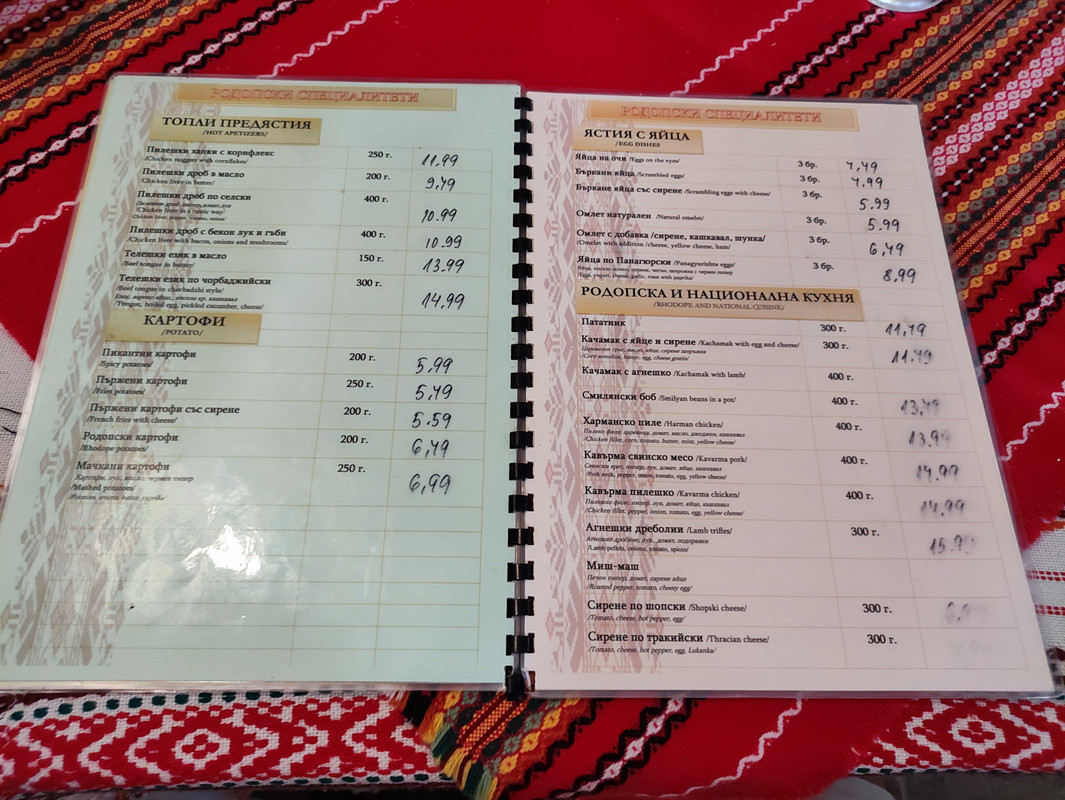 РОДОПСКИ СПЕЦИАЛИТЕТИ
ТОПЛИ ПРЕДЯСТИЯ
/HOT APETIZERS/
Пилешки хапки с корнфлекс 250 г. 11,99
/Chicken nuggets with cornflakes/
Пилешки дроб в масло 200 г. 9,49
/Chicken liver in butter/
Пилешки дроб по селски 400 г. 10.99
Пилешки дроб, пипер, домат, лук
/Chicken liver in a rustic way/
Chicken liver, pepper, tomato, onion
Пилешки дроб с бекон лук и гъби 400 г. 10.99
/Chicken liver with bacon, onions and mushrooms/
Телешки език в масло 150 г. 13.99
/Beef tongue in butter/
Телешки език по чорбаджийски 300 г. 14.99
/Beef tongue in chorbadzhi style/
Език, варено яйце, кисела кр. кашкавал
/Tongue, boiled egg, pickled cucumber, cheese/
КАРТОФИ
/POTATO/
Пикантни картофи 200 г. 5,99
/Spicy potatoes/
Пържени картофи 250 г. 5,49
/Fries potatoes/
Пържени картофи със сирене 200 г. 5.59
/French fries with cheese/
Родопски картофи 200 г. 6,49
/Rhodope potatoes/
Мачкани картофи 250 г. 6,99
Картофи, лук, масло, червен пипер
/Mashed potatoes/
Potatoes, onion, butter, paprika/
РОДОПСКИ СПЕЦИАЛИТЕТИ
ЯСТИЯ С ЯЙЦА
/EGG DISHES
Яйца на очи /Eggs on the eyes/ 3 бр. 4,49
Бъркани яйца /Scrambled eggs/ 3 бр. 4.99
Бъркане яйца със сирене /Scrambling eggs with cheese/ 3 бр. 5.99
Омлет натурален /Natural omelet/ 3 бр. 5.99
Омлет с добавка /сирене, кашкавал, шунка/ 3 бр. 6,49
/Omelas with addition /cheese, yellow cheese, ham/
Яйца по Панагюрски /Panagyurishte eggs/ 3 бр. 8,99
Яйца, кисело мляко, сирене, чесън, запръжка с червен пипер
/Eggs, yogurt, cheese, garlic, roast with paprika/
РОДОПСКА И НАЦИОНАЛНА КУХНЯ
/RHODOPE AND NATIONAL CUISINE/
Пататник 300 г. 11,49
Качамак с яйце и сирене /Kachamak with egg and cheese/ 300 г. 11.49
Царевичен грис, масло, яйце, сирене запръжка
/Corn semolina, butter, egg, cheese gratin/
Качамак с агнешко /Kachamak with lamb/ 400 г.
Смилянски боб /Smilyan beans in a pot/ 400 г. 13,49
Харманско пиле /Harman chicken/ 400 г. 13.99
Пилешко филе, царевица, домат, масло, джоджен, кашкавал
/Chicken fillet, corn, tomato, butter, mint, yellow cheese/
Кавърма свинско месо /Kavarma pork/ 400 г. 14.99
Свински врат, пипер, лук, домат, яйце, кашкавал
/Pork neck, pepper, onion, tomato, egg, yellow cheese/
Кавърма пилешко /Kavarma chicken/ 400 г. 14,99
Пилешко филе, пипер, лук, домат, яйце, кашкавал
/Chicken fillet, pepper, onion, tomato, egg, yellow cheese/
Агнешки дреболии /Lamb trifles/ 300 г.
Агнешко дробчие, лук, домат, подправки
/Lamb pellets, onions, tomato, spices/
Миш-маш
Печен пипер, домат, сирене яйце
/Roasted pepper, tomato, cheesy egg/
Сирене по шопски /Shopski cheese/ 300 г.
/Tomato, cheese, hot pepper, egg/
Сирене по тракийски /Thracian cheese/ 300 г.
/Tomato, cheese, hot pepper, egg, Lukanka/